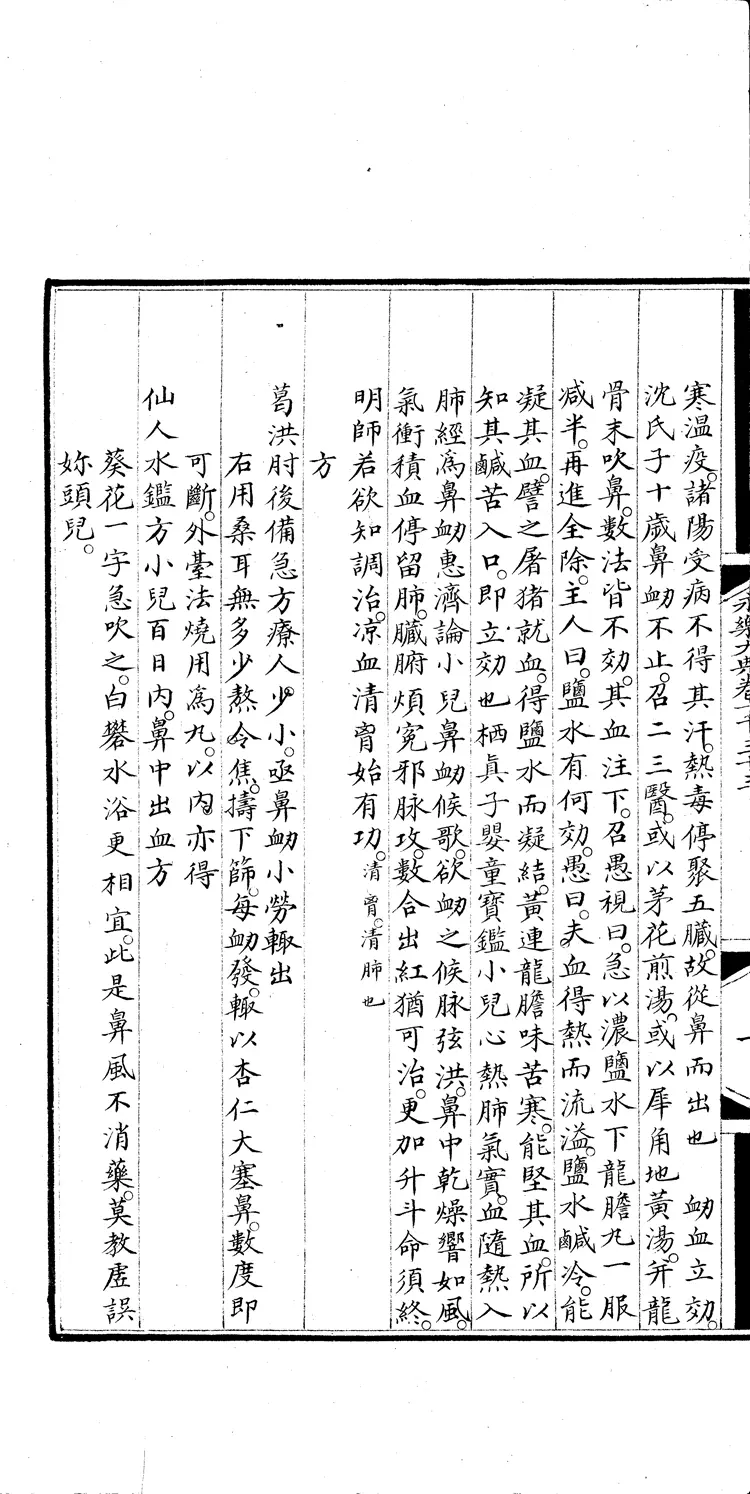 寒溫疫。諸陽受病不得其汗。熱毒停聚五臟。故從鼻而出也　衂血立効。
沈氏子十歲鼻衂不止。召二三醫。或以茅花煎湯。或以犀角地黃湯。并龍
骨末吹鼻。數法皆不効。其血注下。召愚視曰。急以濃鹽水下龍膽丸一服
减半。再進全除。主人曰。鹽水有何効。愚曰。夫血得熱而流溢。鹽水鹹冷。能
凝其血。譬之屠猪就血。得鹽水而凝結。黃連龍膽味苦寒。能堅其血。所以
知其鹹苦入口。即立効也栖眞子嬰童寶鑑小兒心熱肺氣實。血隨熱入
肺經爲鼻衂惠濟論小兒鼻衂候歌。欲衂之候脉弦洪。鼻中乾燥響如風。
氣衝積血停留肺。臟腑煩寃邪脉攻。數合出紅猶可治。更加升斗命須終。
明師若欲知調治。凉血清胷始有功。清胷。清肺也
方
葛洪肘後備急方療人。少小。亟鼻衂小勞輙出
右用桑耳無多少熬令焦。擣下篩。每衂發。輙以杏仁大塞鼻。數度即
可斷。外臺法燒用爲丸。以內。亦得
仙人水鑑方小兒百日內。鼻中出血方
葵花一字急吹之。白礬水浴更相宜。此是鼻風不消藥。莫教虚誤
妳頭兒。
永樂大典卷一千三十三